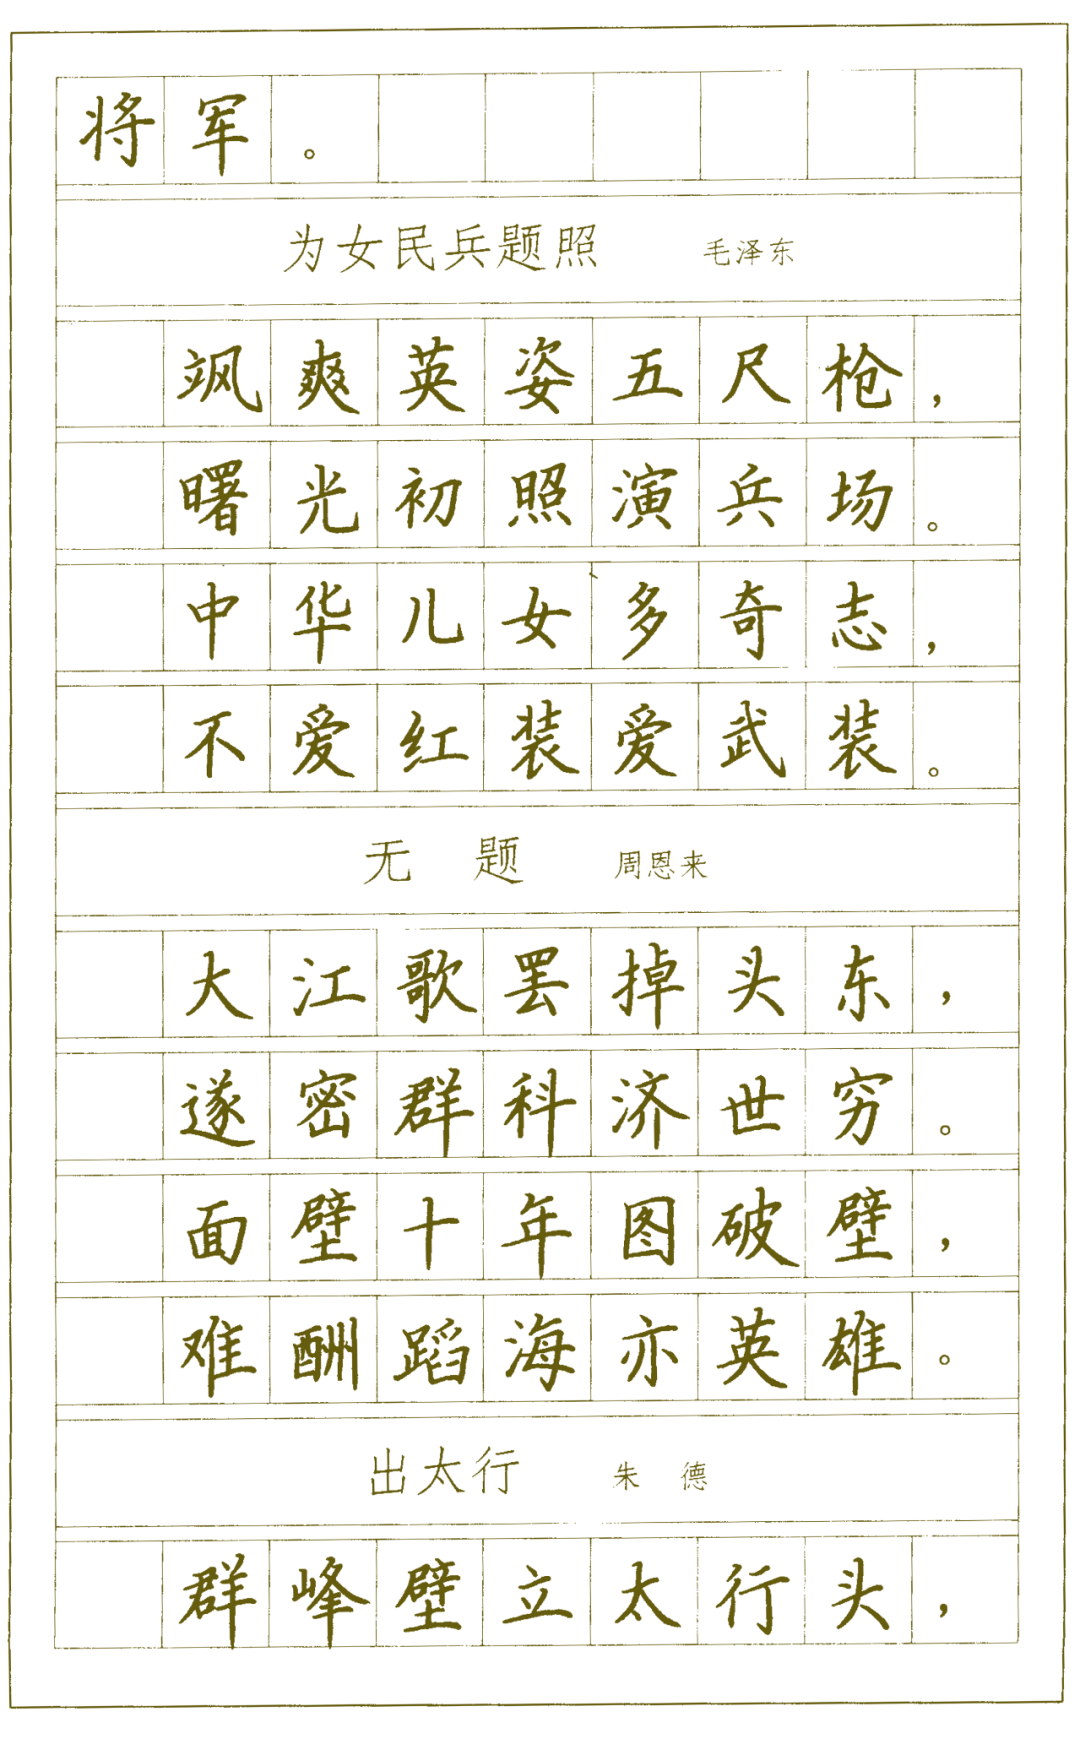 将军。
为女民兵题照 毛泽东
飒爽英姿五尺枪，
曙光初照演兵场。
中华儿女多奇志，
不爱红装爱武装。
无题 周恩来
大江歌罢掉头东，
遂密群科济世穷。
面壁十年图破壁，
难酬蹈海亦英雄。
出太行 朱德
群峰壁立太行头，